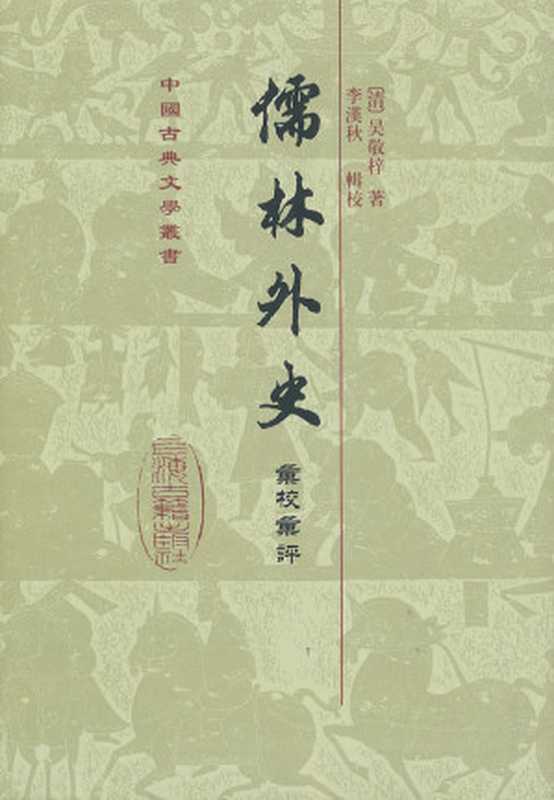 [清]吳敬梓 著
李漢秋 輯校
儒林外史
彙校彙評
中國古典文學叢書
上海古籍出版社